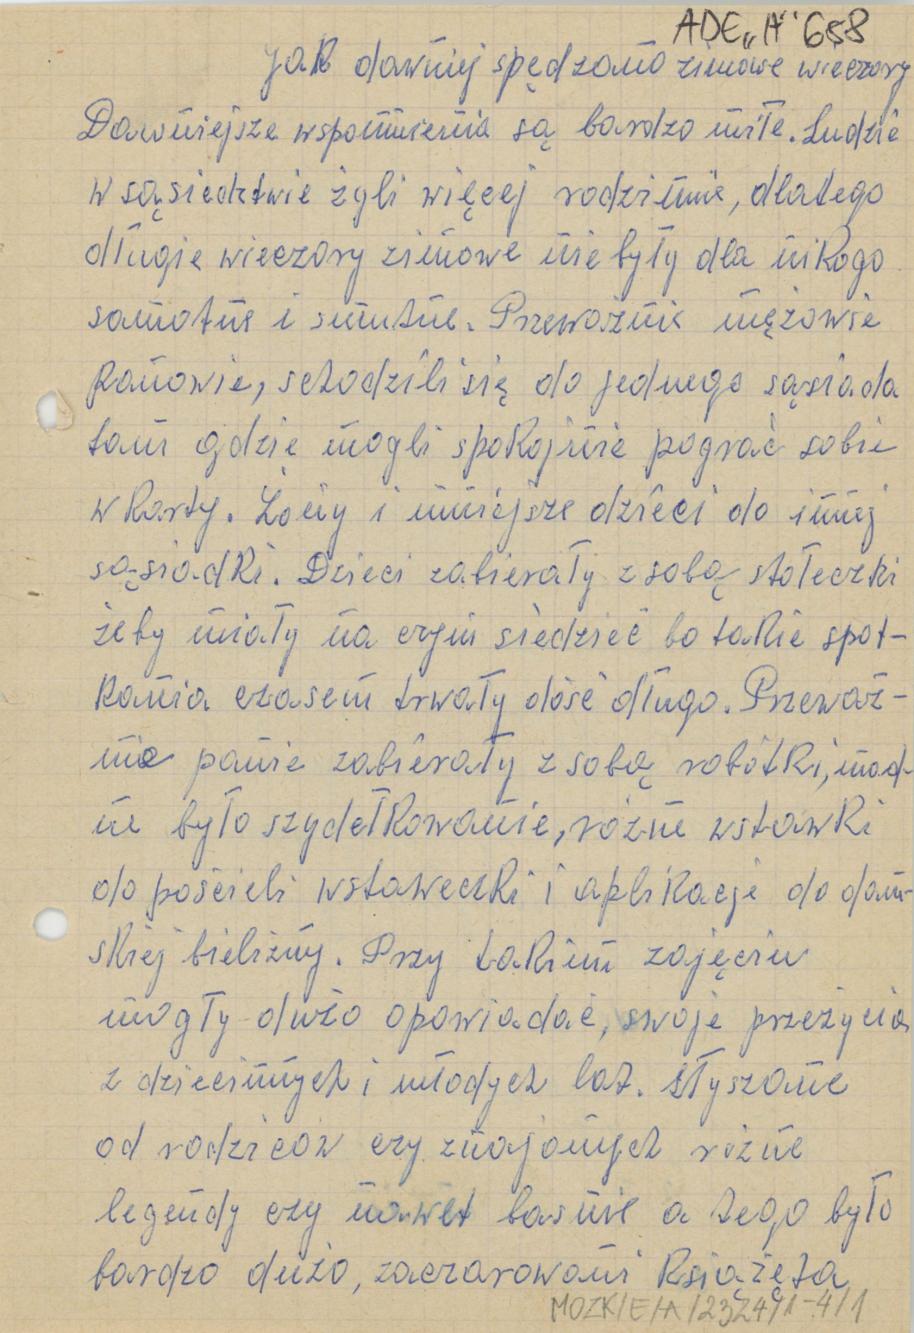 ADE „A" 658
Jak dawniej spędzano zimowe wieczory
Dawniejsze wspomnienia są bardzo miłe. Ludzie
w sąsiedztwie żyli więcej rodzinnie, dlatego
długie wieczory zimowe nie były dla nikogo
samotne i smutne. Przeważnie mężowie
panowie, schodzili się do jednego sąsiada
tam gdzie mogli spokojnie pograć sobie
w karty. Żony i mniejsze dzieci do innej
sąsiadki. Dzieci zabierały z sobą stołeczki
żeby miały na czym siedzieć bo takie spot-
kania czasem trwały dość długo. Przeważ-
nie panie zabierały z sobą robótki, mod-
ne było szydełkowanie, różne wstawki
do pościeli wstaweczki i aplikacje do dam-
skiej bielizny. Przy takim zajęciu
mogły dużo opowiadać, swoje przeżycia
z dziecinnych i młodych lat. Słyszane
od rodziców czy znajomych różne
legendy czy nawet baśnie a tego było
bardzo dużo, zaczarowani książęta
MOZK/E/A/2324/1-4/1